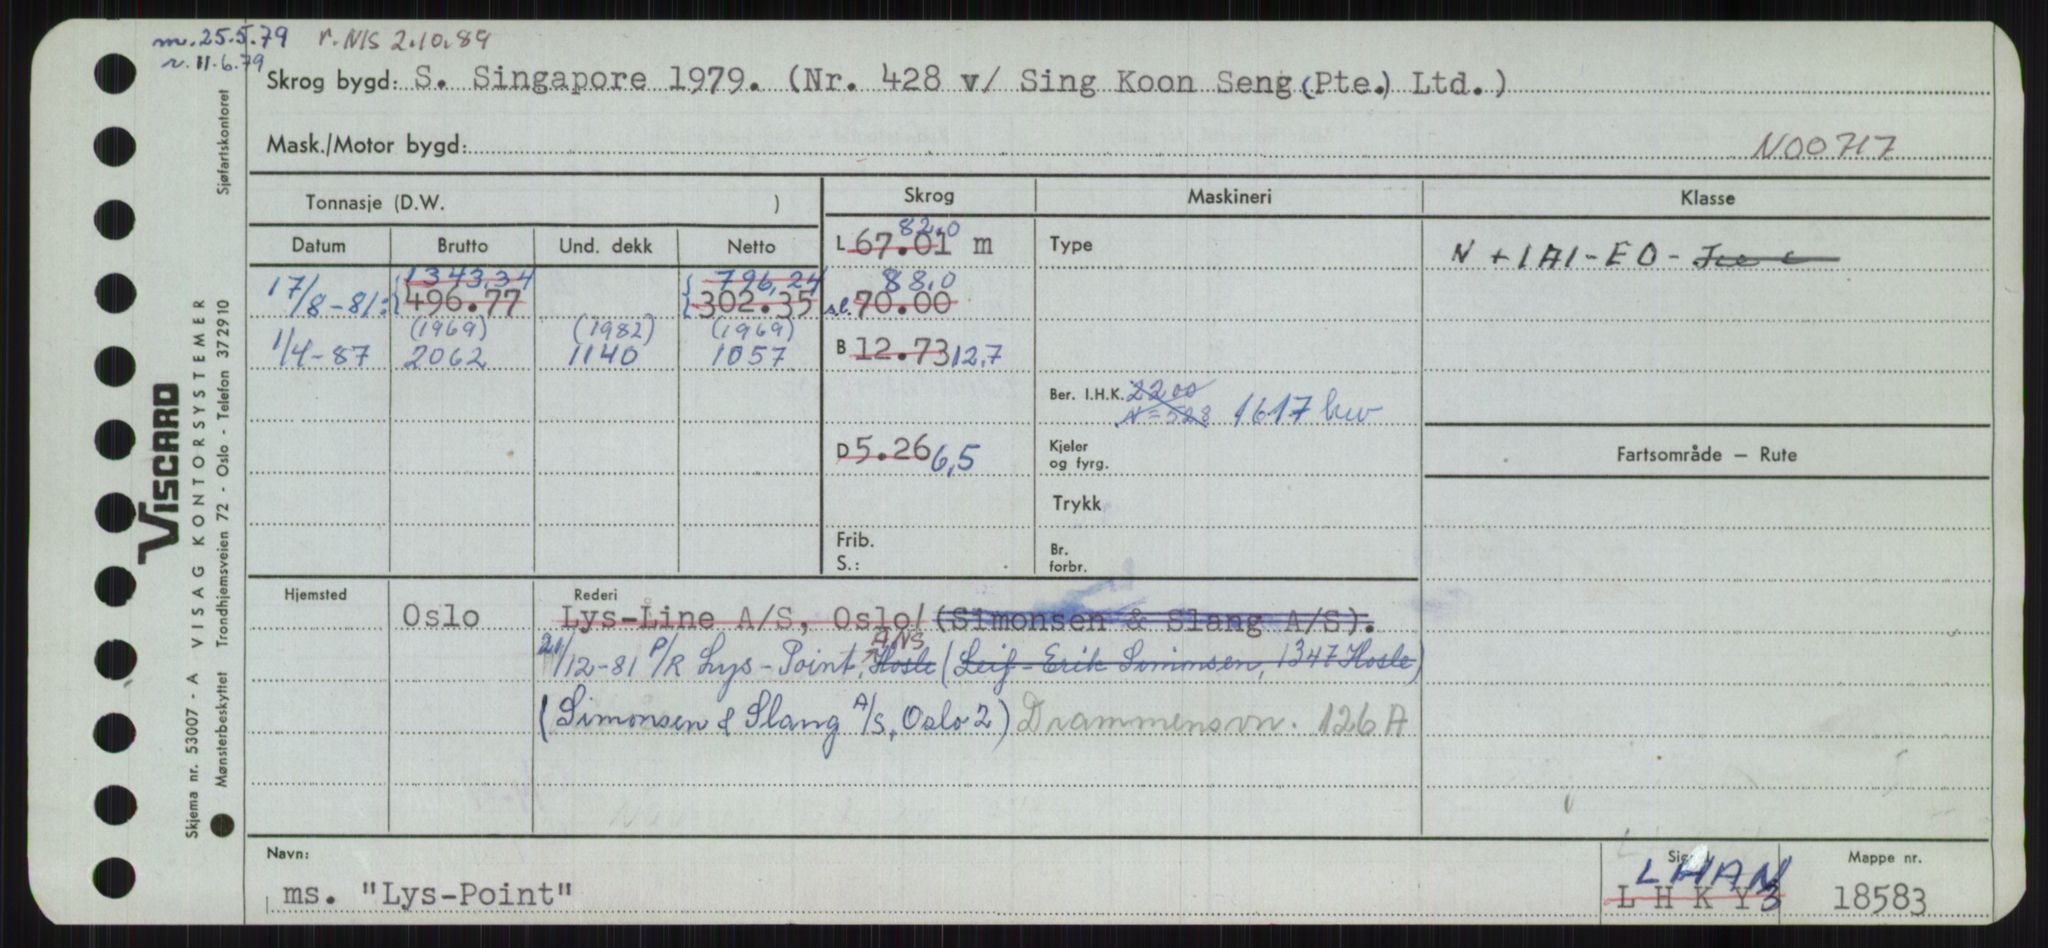 m. 25.5.79 r. NIS 2.10.89
r. 11.6.79
Skrog bygd: S. Singapore 1979. (Nr. 428 v/ Sing Koon Seng (Pte.) Ltd.)
Mask./Motor bygd: N00717
Tonnasje (D.W. ) Skrog Maskineri Klasse
Datum Brutto Und. dekk Netto
82,0
L 67.01 m Type N + 1A1 - EO -
1343,34 796,24 88,0
17/8-81: 496.77 302.35 s.l. 70.00
(1969) (1982) (1969)
1/4-87 2062 1140 1057 B 12.73 12,7
Ber. I.H.K. 2200
N = 528 1617 kw
D 5.26 6,5 Kjeler
og fyrg.
Fartsområde – Rute
Trykk
Frib.
S.:
Br.
forbr.
Hjemsted Rederi
Oslo Lys-Line A/S, Oslo/(Simonsen & Slang A/S).
ANS
21/12-81 P/R Lys-Point, Hosle (Leif-Erik Simonsen, 1347 Hosle)
(Simonsen & Slang A/S, Oslo 2) Drammensvn. 126 A
Navn: Mappe nr.
LHAN
ms. "Lys-Point" L H K Y 3 18583
VISCARD
Skjema nr. 53007 - A VISAG KONTORSYSTEMER
Mønsterbeskyttet Trondhjemsveien 72 - Oslo - Telefon 372910 Sjøfartskontoret